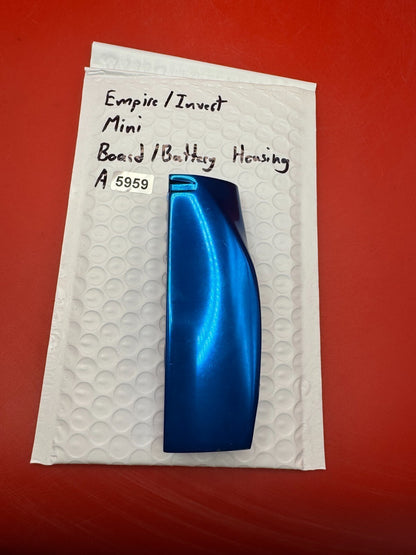 Empire/Invert
Mini
Board/Battery Housing
A 5959